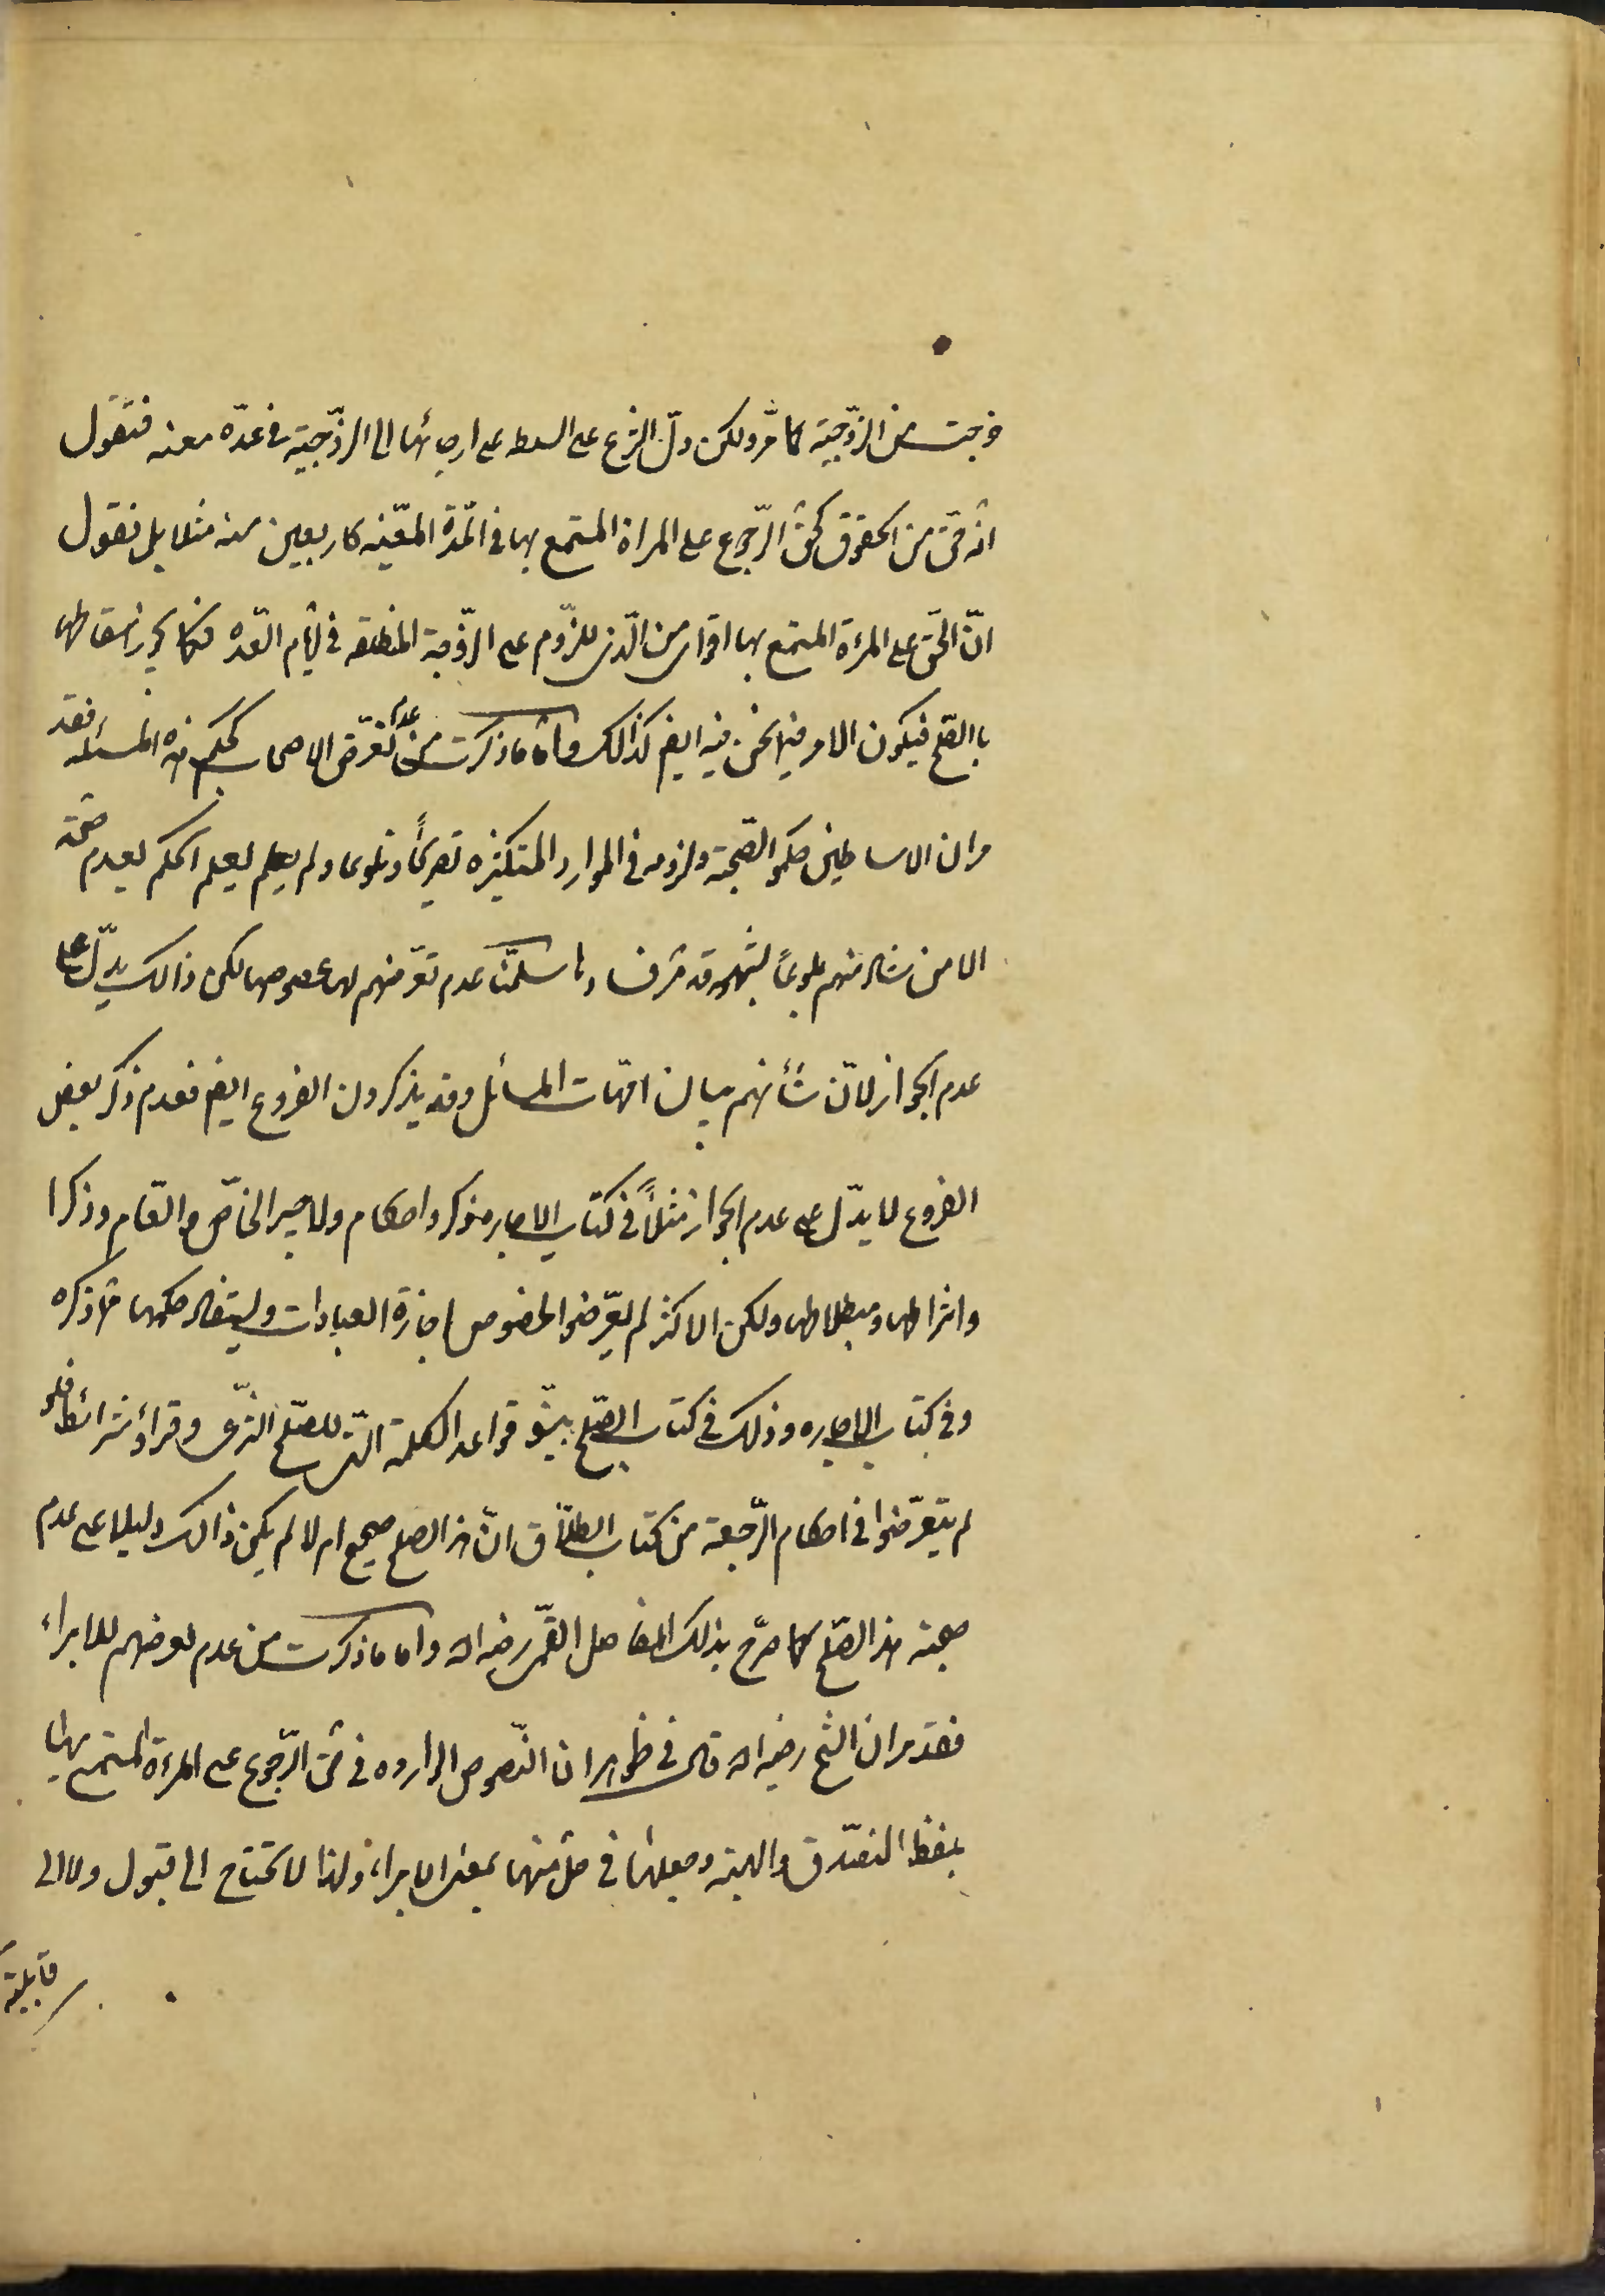 خرجت من الزّوجيّة كما مرّ ولكن دلّ الشرع على السلط على ارجائها الى الزّوجيّة فى عدّة معينه فنقول
انّه حقّ من الحقوق كحقّ الرّجوع على المراة المتمتع بها فى المّدة المعّينه كاربعين سنه مثلا بل نقول
انّ الحّق على المرءة المتمتع بها اقوى من الّذى للزّوم على الزّوجة المطلقه فى ايّام العّده فكما يجوز اسقاطها
باالصّلح فيكون الامر فيما نحن فيه ايضر كذالك وامّا ما ذكرت من عدم تعّرض الاصحاب لحكم هذه المسئله فقد
مر ان الاساطين حكموا الصّحة ولزومه فى الموارد المتكثره تصريحًا وتلويحا ولم يعلم الحكم بعدم صحّة
الا من شاذ منهم تلويحًا لشبهة قد عرفت فسادها سلمّنا عدم تعّرضهم لها بخصوصها لكن ذالك لا يدّل على
عدم الجواز لانّ شأنهم بيان امّهات المسائل وقد يذكرون الفروع ايضر فعدم ذكر بعض
الفروع لا يدّل على عدم الجواز مثلاً فى كتاب الاجاره ذكروا احكام ولاجير الخاّص والعّام وذكرا
واشراطها ومبطلاطها ولكن الاكثر لم يعّرضوا لخصوص اجازة العبادات وليتفاد حكمها مّما ذكره
وفى كتاب الاجاره وذلك فى كتاب الصّلح بينّو قواعد الكلمة التى للصّلح الشّرعى وقراؤ شرائطه فلو
لم يتعّرضوا فى احكام الرّجعة من كتاب الطلّاق انّ هذ الصلح صحيح ام لا لم يكن ذالك دليلا على عدم
صحة هذ الصّلح كما صرّح بذلك الفاضل القمّى رضى اله واما ما ذكرت من عدم تعرضهم للابراء
فقد مر ان الشيخ رضى اله قال فى ظواهر ان النّصوص الوارده فى حّق الرّجوع على المرءة المتمتع بها
بلفظ التصّدق والهبة وجعلها فى حّل منها بمعنى الابراء ولهذا لا يحتاج الى قبول ولا الى
قابلية